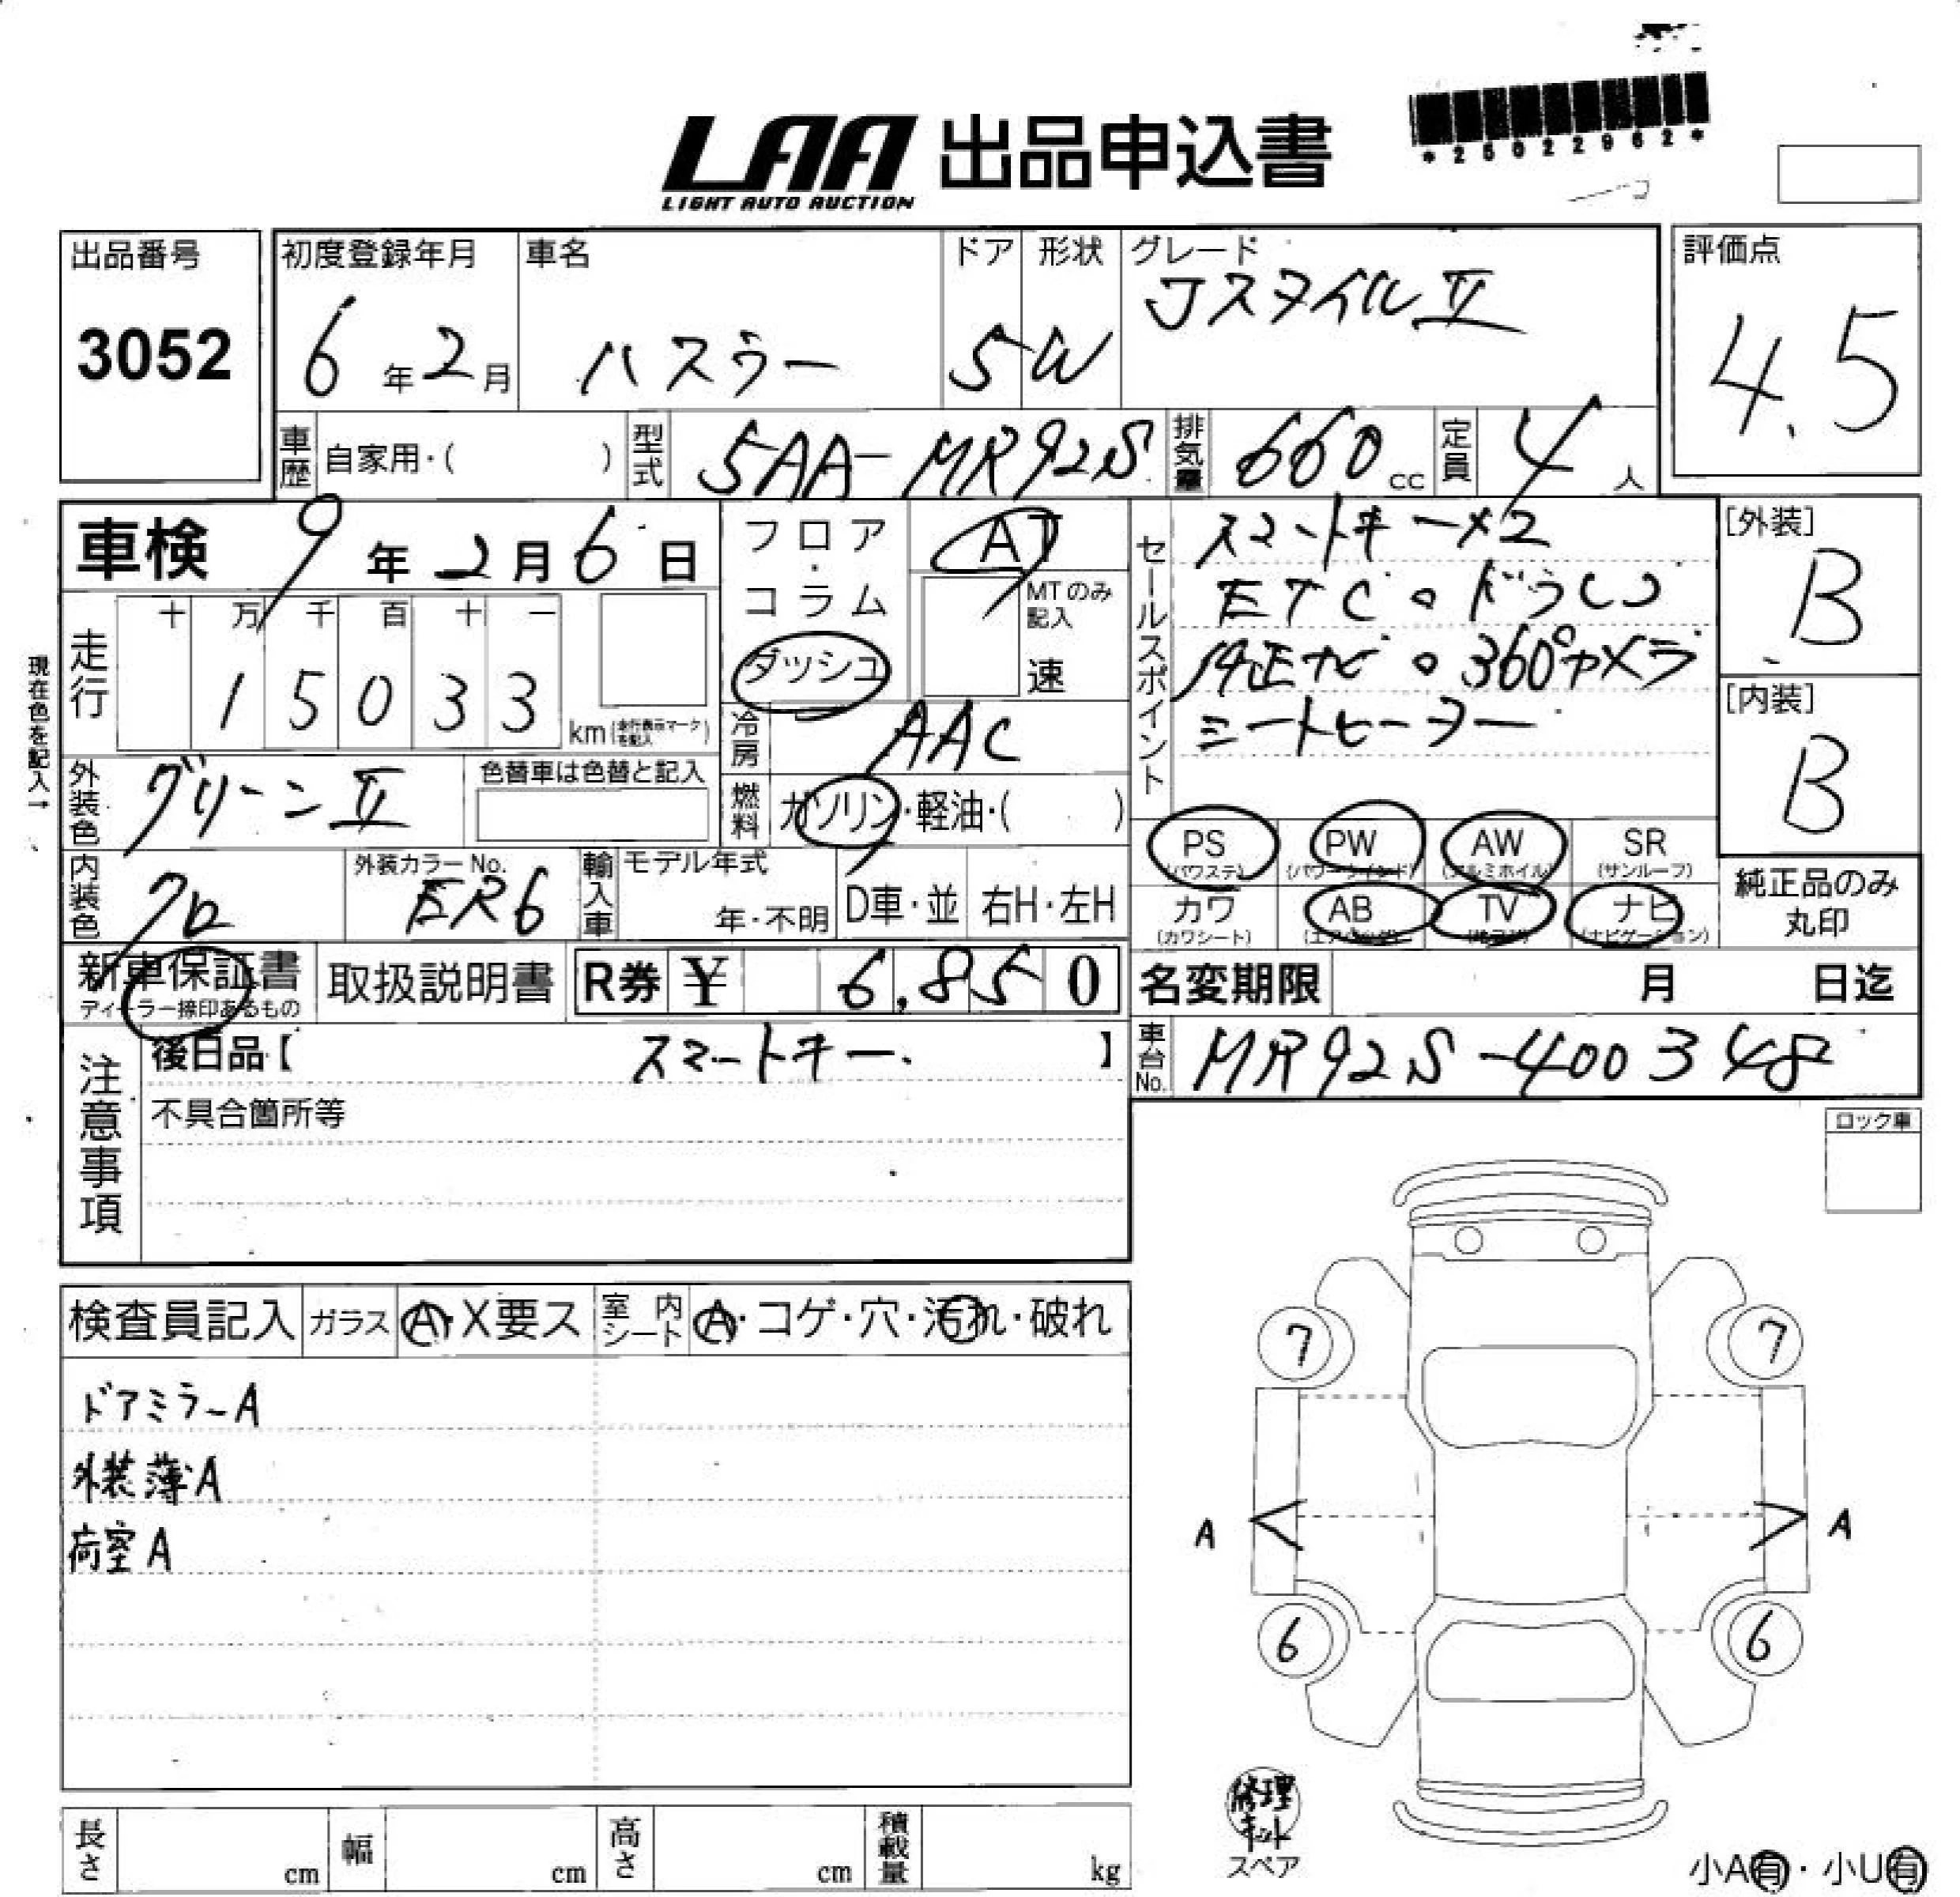 *26022962*
LAA 出品申込書
LIGHT AUTO AUCTION
出品番号
3052
初度登録年月
6年2月
車名
ハスラー
ドア
5
形状
W
グレード
JスタイルⅡ
評価点
4.5
車歴 自家用・( )
型式 5AA-MR92S
排気量 660cc
定員 4人
車検 9年2月6日
フロア・コラム
ダッシュ
AT
MTのみ記入
速
走行
十万千百十一
15033
km(走行表示マークを記入)
現在色を記入→
冷房 AAC
燃料 ガソリン・軽油・( )
外装色 グリーンⅡ
色替車は色替と記入
内装色 クロ
外装カラーNo.
ER6
輸入車
モデル年式
年・不明
D車・並
右H・左H
セールスポイント
スマートキー×2
ETC。ドラレコ
純正ナビ。360°カメラ
シートヒーター
PS
(パワステ)
PW
(パワーウインド)
AW
(アルミホイル)
SR
(サンルーフ)
カワ
(カワシート)
AB
(エアバッグ)
TV
ナビ
(ナビゲーション)
[外装]
B
[内装]
B
純正品のみ
丸印
新車保証書
ディーラー捺印あるもの
取扱説明書
R券 ¥ 6,850
名変期限 月 日迄
車台No. MR92S-400348
注意事項
後日品【 スマートキー 】
不具合箇所等
ロック車
検査員記入
ガラス A・X要ス
室内シート A・コゲ・穴・汚れ・破れ
ドアミラーA
外装薄A
荷室A
7
7
A
A
6
6
修理キット
スペア
小A有・小U有
長さ cm
幅 cm
高さ cm
積載量 kg